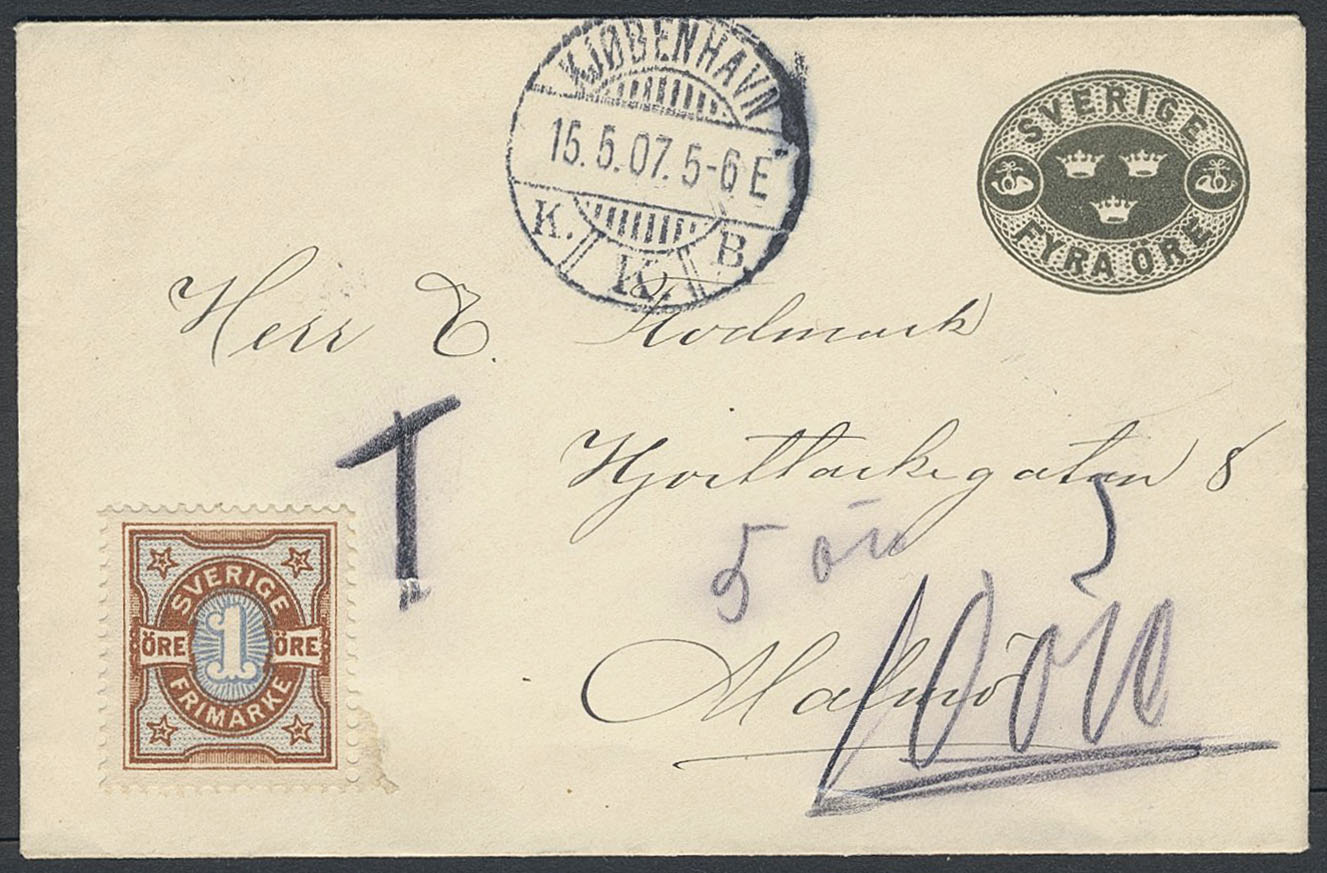 KJØBENHAVN
15.5.07. 5-6 E
K. K. B.
SVERIGE
FYRA ÖRE
Herr E.
T
8
5 öre
SVERIGE
ÖRE 1 ÖRE
FRIMÄRKE
Malmö
10 öre